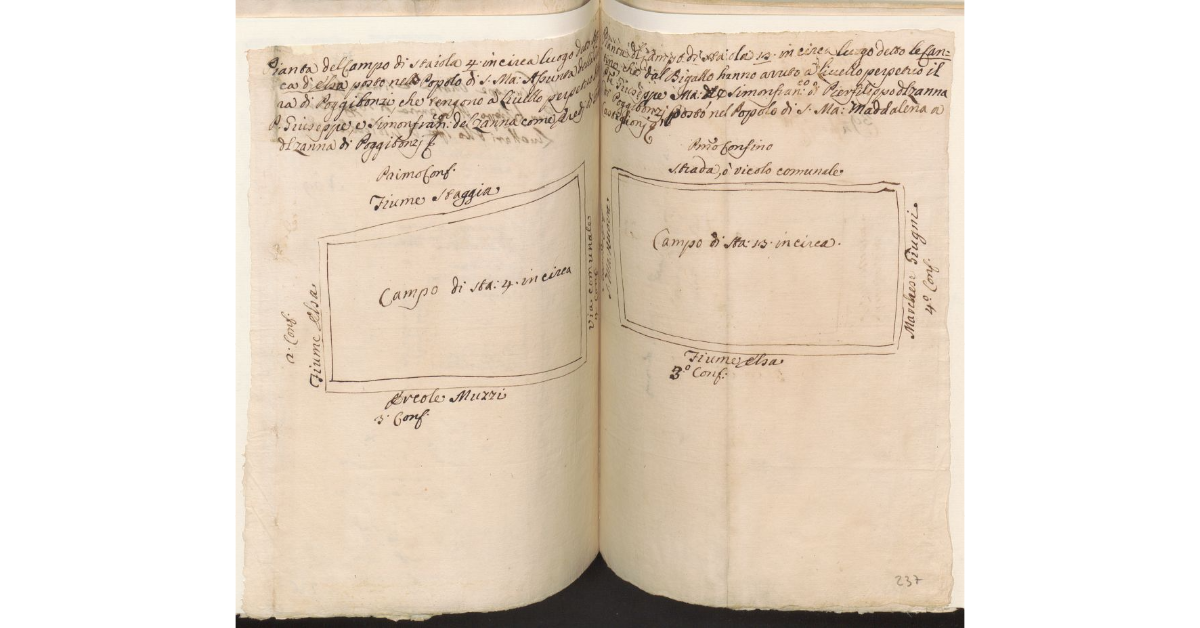 Pianta del Campo di Staiola 4. in circa luogo detto
ca di elsa posto nelle Popolo di S. Ma: Assunta
ra di Poggibonzi che tengono a Livello perpetuo
P. Giuseppe, e Simonfran:co del Zanna come Ered:
dl Zanna di Poggibonzj
Primo Conf.
Fiume Staggia
Campo di sta: 4. in circa
2. Conf.
Fiume Elsa
Via comunale
Ercole Muzzi
3. Conf.
Pianta di Campo di Staiola 13. in circa luogo detto le Can=
che dal Bigallo hanno avuto a livello perpetuo il
Giuseppe Ma: e Simonfran:co di Pierfilippo dl Zanna
di Poggibonzj posto nel Popolo di S. Ma: Maddalena a
Pmo Confino
Strada, ò vicolo comunale
Campo di sta: 13. in circa.
Marchese Giugni
4.º Conf.
Fiume elsa
3º Conf:
237